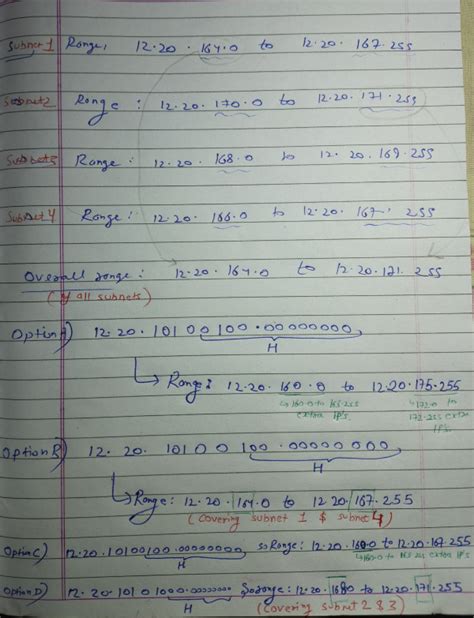 Subnet 1 Range: 12.20.164.0 to 12.20.167.255
Subnet2 Range: 12.20.170.0 to 12.20.171.255
Subnet3 Range: 12.20.168.0 to 12.20.169.255
Subnet4 Range: 12.20.166.0 to 12.20.167.255
Overall range: 12.20.164.0 to 12.20.171.255
(of all subnets)
Option A) 12.20.10100100.00000000
H
Range: 12.20.160.0 to 12.20.175.255
160.0 to 163.255 extra IP's
172.0 to 175.255 extra IP's
Option B) 12.20.10100100.00000000
H
Range: 12.20.164.0 to 12.20.167.255
(Covering subnet 1 & subnet 4)
Option C) 12.20.10100100.00000000 so Range: 12.20.160.0 to 12.20.167.255
H 160.0 to 163.255 extra IP's
Option D) 12.20.10101000.00000000 So range: 12.20.168.0 to 12.20.171.255
H (Covering subnet 2 & 3)